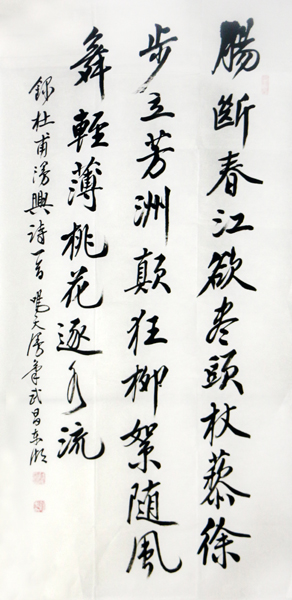 腸斷春江欲盡頭杖藜徐
步立芳洲顛狂柳絮隨風
舞輕薄桃花逐水流
錄杜甫漫興詩一首 漫筆武昌東湖